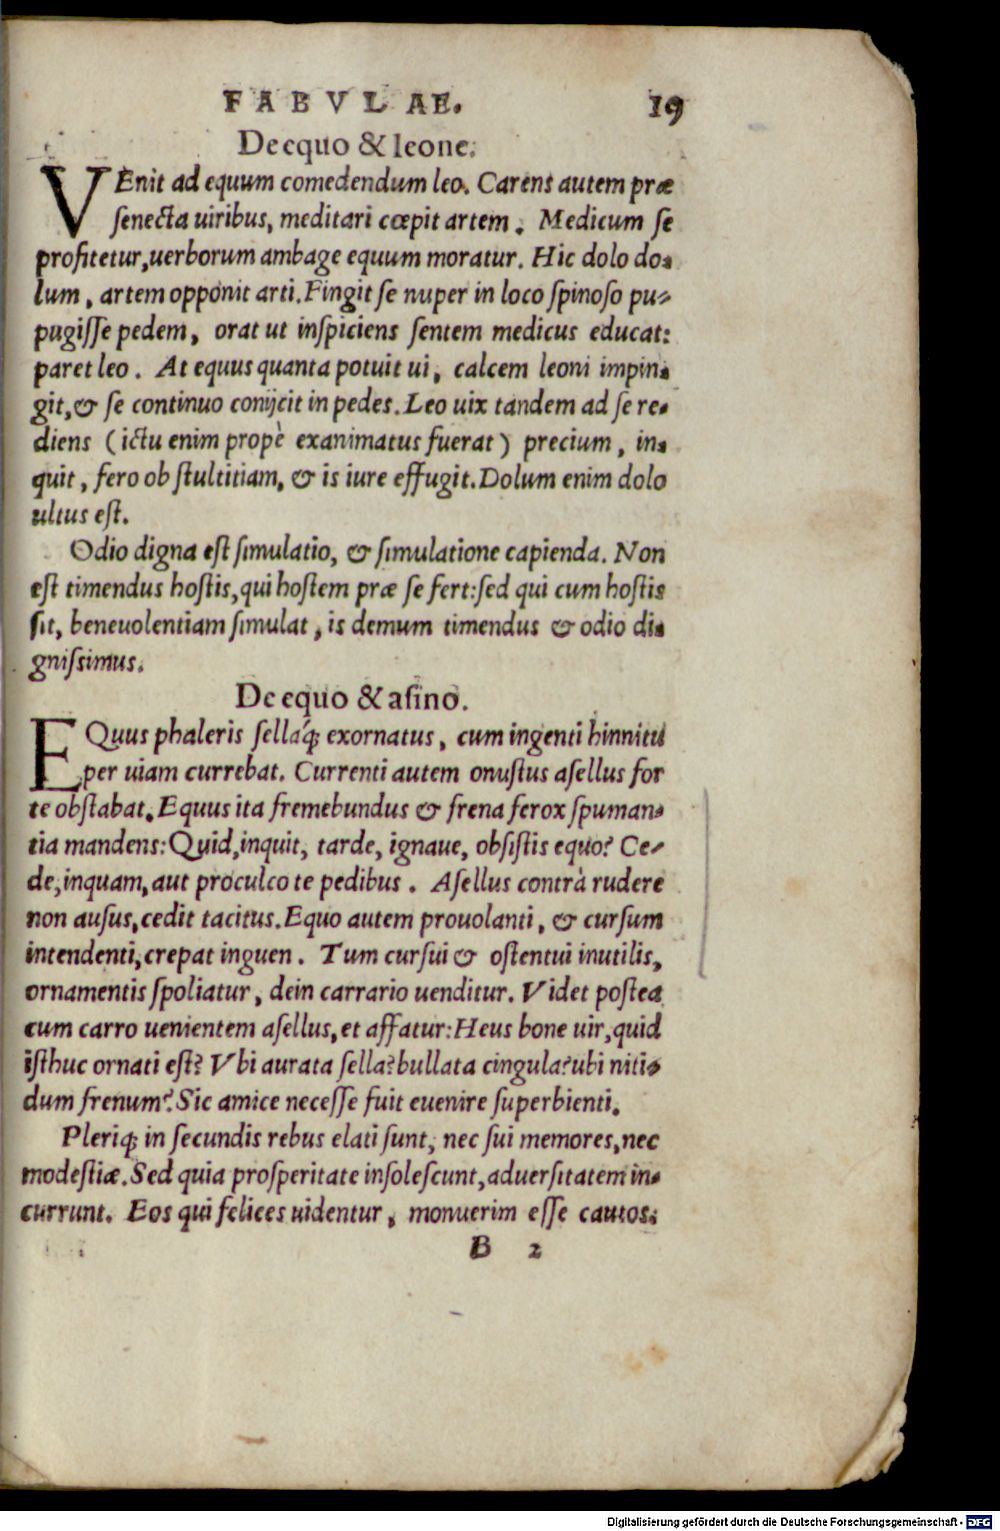 FABVLAE. 19
De equo & leone.
VEnit ad equum comedendum leo. Carens autem præ
senecta uiribus, meditari cœpit artem. Medicum se
profitetur, uerborum ambage equum moratur. Hic dolo do-
lum, artem opponit arti. Fingit se nuper in loco spinoso pu-
pugisse pedem, orat ut inspiciens sentem medicus educat:
paret leo. At equus quanta potuit ui, calcem leoni impin-
git, & se continuo conijcit in pedes. Leo uix tandem ad se re-
diens (ictu enim propè exanimatus fuerat) precium, in-
quit, fero ob stultitiam, & is iure effugit. Dolum enim dolo
ultus est.
Odio digna est simulatio, & simulatione capienda. Non
est timendus hostis, qui hostem præ se fert: sed qui cum hostis
sit, beneuolentiam simulat, is demum timendus & odio di-
gnissimus.
De equo & asino.
EQuus phaleris sellaq́; exornatus, cum ingenti hinnitu
per uiam currebat. Currenti autem onustus asellus for
te obstabat. Equus ita fremebundus & frena ferox spuman-
tia mandens: Quid, inquit, tarde, ignaue, obsistis equo? Ce-
de, inquam, aut proculco te pedibus. Asellus contrà rudere
non ausus, cedit tacitus. Equo autem prouolanti, & cursum
intendenti, crepat inguen. Tum cursui & ostentui inutilis,
ornamentis spoliatur, dein carrario uenditur. Videt postea
cum carro uenientem asellus, et affatur: Heus bone uir, quid
isthuc ornati est? Vbi aurata sella? bullata cingula? ubi niti-
dum frenum? Sic amice necesse fuit euenire superbienti.
Pleriq; in secundis rebus elati sunt, nec sui memores, nec
modestiæ. Sed quia prosperitate insolescunt, aduersitatem in-
currunt. Eos qui felices uidentur, monuerim esse cautos.
B 2
Digitalisierung gefördert durch die Deutsche Forschungsgemeinschaft - DFG